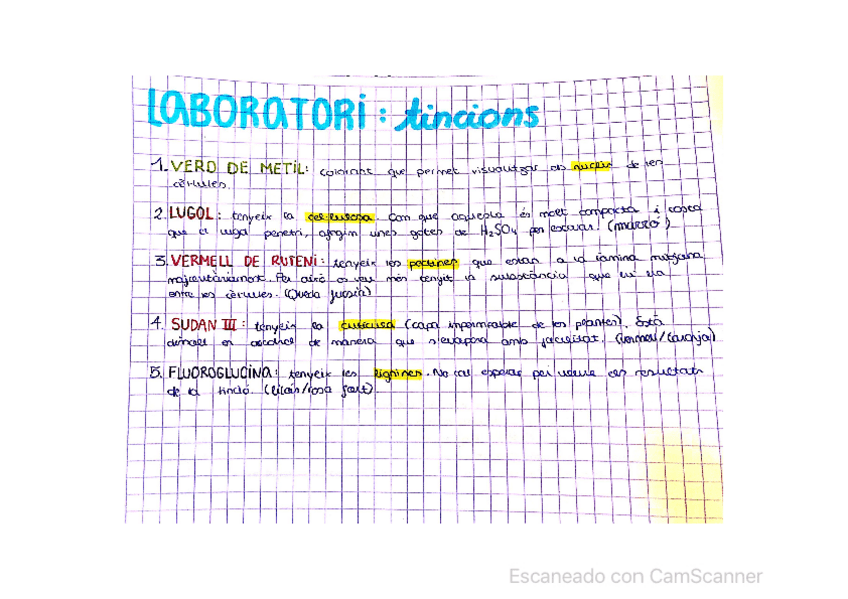 LABORATORI: tincions
1. VERD DE METIL: colorant que permet visualitzar els nuclis de les
cèl·lules.
2. LUGOL: tenyeix la cel·lulosa. Com que aquesta és molt compacta i costa
que el lugol penetri, afegim unes gotes de H₂SO₄ per estovar. (marró)
3. VERMELL DE RUTENI: tenyeix les pectines que estan a la làmina mitjana
majoritàriament. Per això es veu més tenyit la substància que hi ha
entre les cèl·lules. (Queda fucsia)
4. SUDAN III: tenyeix la cuticula (capa impermeable de les plantes). Està
dissolt en alcohol de manera que s'evapora amb facilitat. (vermell/taronja)
5. FLUOROGLUCINA: tenyeix les lignines. No cal esperar per veure els resultats
de la tinció. (lilós/rosa fort).
Escaneado con CamScanner